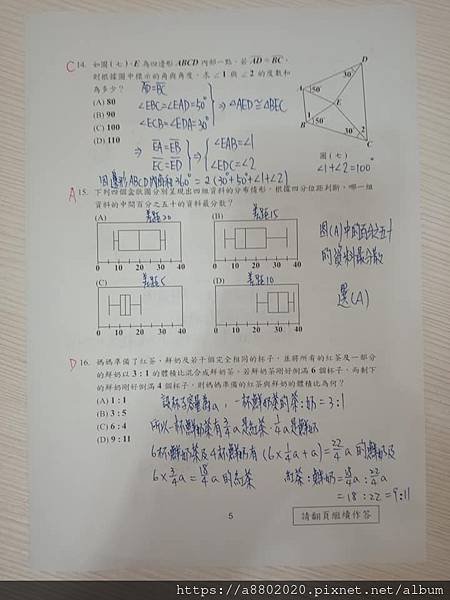 C 14. 如圖(七),E為四邊形ABCD內部一點,若AD=BC,
則根據圖中標示的角與角度,求∠1與∠2的度數和
為多少?
(A) 80
(B) 90
(C) 100
(D) 110
AD=BC
∠EBC=∠EAD=50°
∠ECB=∠EDA=30°
⇒△AED≅△BEC
⇒ EA=EB
EC=ED
⇒ ∠EAB=∠1
∠EDC=∠2
D
30
A
50
E
B
1
50
30
2
C
圖(七)
∠1+∠2=100°
360°=2(30°+50°+∠1+∠2)
A 15. 下列四個盒狀圖分別呈現出四組資料的分布情形,根據四分位距判斷,哪一組
資料的中間百分之五十的資料最分散?
(A) 差距20
0 10 20 30 40
(B) 差距15
0 10 20 30 40
(C) 差距5
0 10 20 30 40
(D) 差距10
0 10 20 30 40
因(A)中的百分之五十
的資料最分散
選(A)
D 16. 媽媽準備了紅茶、鮮奶及若干個完全相同的杯子,並將所有的紅茶及一部分
的鮮奶以3:1的體積比混合成鮮奶茶。若鮮奶茶剛好倒滿6個杯子,而剩下
的鮮奶剛好倒滿4個杯子,則媽媽準備的紅茶與鮮奶的體積比為何?
(A) 1:1
(B) 3:5
(C) 6:4
(D) 9:11
設杯子容量為a,一杯鮮奶茶的茶:奶=3:1
所以一杯鮮奶茶有3/4a是紅茶,1/4a是鮮奶
6杯鮮奶茶及4杯鮮奶有(6×1/4a+4a)=22/4a的鮮奶及
6×3/4a=18/4a的紅茶
紅茶:鮮奶=18/4a:22/4a
=18:22=9:11
5
請翻頁繼續作答
https://a8802020.pixnet.net/album